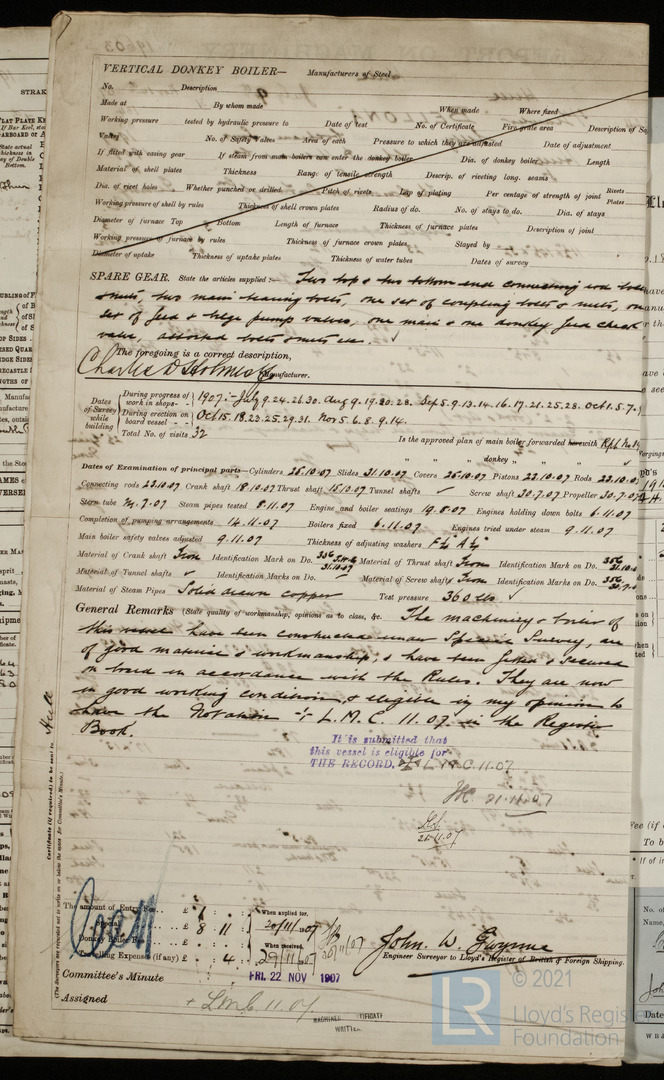 VERTICAL DONKEY BOILER— Manufacturers of Steel
No. Description
Made at By whom made When made Where fixed
Working pressure tested by hydraulic pressure to Date of test No. of Certificate Fire grate area Description of
Valves No. of Safety valves Area of each Pressure to which they are adjusted Date of adjustment
If fitted with easing gear If steam from main boilers can enter the donkey boiler Dia. of donkey boiler Length
Material of shell plates Thickness Range of tensile strength Descrip. of riveting long. seams
Dia. of rivet holes Whether punched or drilled Pitch of rivets Lap of plating Per centage of strength of joint Rivets Plates
Working pressure of shell by rules Thickness of shell crown plates Radius of do. No. of stays to do. Dia. of stays
Diameter of furnace Top Bottom Length of furnace Thickness of furnace plates Description of joint
Working pressure of furnace by rules Thickness of furnace crown plates Stayed by
Diameter of uptake Thickness of uptake plates Thickness of water tubes Dates of survey
SPARE GEAR. State the articles supplied:— Two top & two bottom end connecting rod bolts
& nuts, two main bearing bolts, one set of coupling bolts & nuts, one
set of feed & bilge pump valves, one main & one donkey feed check
valve, assorted bolts & nuts etc.
The foregoing is a correct description,
Charles D Holmes & Co Manufacturer.
Dates of Survey while building
During progress of work in shops-- 1907:- July 9.24.26.30. Aug 9.19.20.28. Sep 5.9.13.14.16.17.21.25.28. Oct 1.5.7.
During erection on board vessel--- Oct 15.18.23.25.29.31. Nov 5.6.8.9.14.
Total No. of visits 32
Is the approved plan of main boiler forwarded herewith
" " " donkey " " "
Dates of Examination of principal parts—Cylinders 26.10.07 Slides 31.10.07 Covers 26.10.07 Pistons 22.10.07 Rods 22.10.07
Connecting rods 22.10.07 Crank shaft 18.10.07 Thrust shaft 15.10.07 Tunnel shafts ✓ Screw shaft 30.7.07 Propeller 30.7.07
Stern tube 7.07 Steam pipes tested 8.11.07 Engine and boiler seatings 19.8.07 Engines holding down bolts 6.11.07
Completion of pumping arrangements 14.11.07 Boilers fixed 6.11.07 Engines tried under steam 9.11.07
Main boiler safety valves adjusted 9.11.07 Thickness of adjusting washers
Material of Crank shaft Iron Identification Mark on Do. 356 31.10.07 Material of Thrust shaft Iron Identification Mark on Do. 356
Material of Tunnel shafts ✓ Identification Marks on Do. ✓ Material of Screw shafts Iron Identification Marks on Do. 356
Material of Steam Pipes Solid drawn copper Test pressure 360 lbs ✓
General Remarks (State quality of workmanship, opinions as to class, &c. The machinery & boiler of
this vessel have been constructed under Special Survey, are
of good material & workmanship, & have been fitted & secured
on board in accordance with the Rules. They are now
in good working condition, & eligible in my opinion to
have the Notation + L.M.C. 11.07 in the Register
Book.
It is submitted that
this vessel is eligible for
THE RECORD. + L M C. 11.07
21.11.07
21.11.07
Certificate (if required) to be sent to Hull
(The Surveyors are requested not to write on or below the space for Committee's Minute.)
The amount of Entry Fee.. £ 1 : : When applied for,
Special £ 8 : 11 : 20/11/1907
Donkey Boiler Fee £ : : When received,
Travelling Expenses (if any) £ : 4 : 29/11/07
John W. Gwynne
Engineer Surveyor to Lloyd's Register of British & Foreign Shipping.
Committee's Minute FRI. 22 NOV 1907
Assigned + L.M.C. 11.07
MACHINERY CERTIFICATE
WRITTEN
© 2021
Lloyd's Register
Foundation
LR